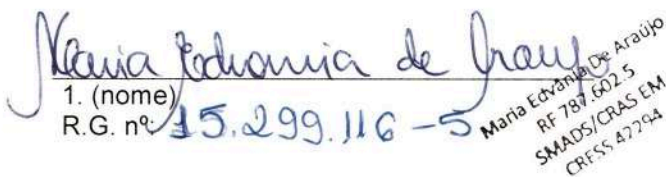 Maria Edvania de Araujo
1. (nome)
R.G. nº: 15.299.116-5
Maria Edvânia De Araújo
RF 787.602.5
SMADS/CRAS EM
CRESS 47294